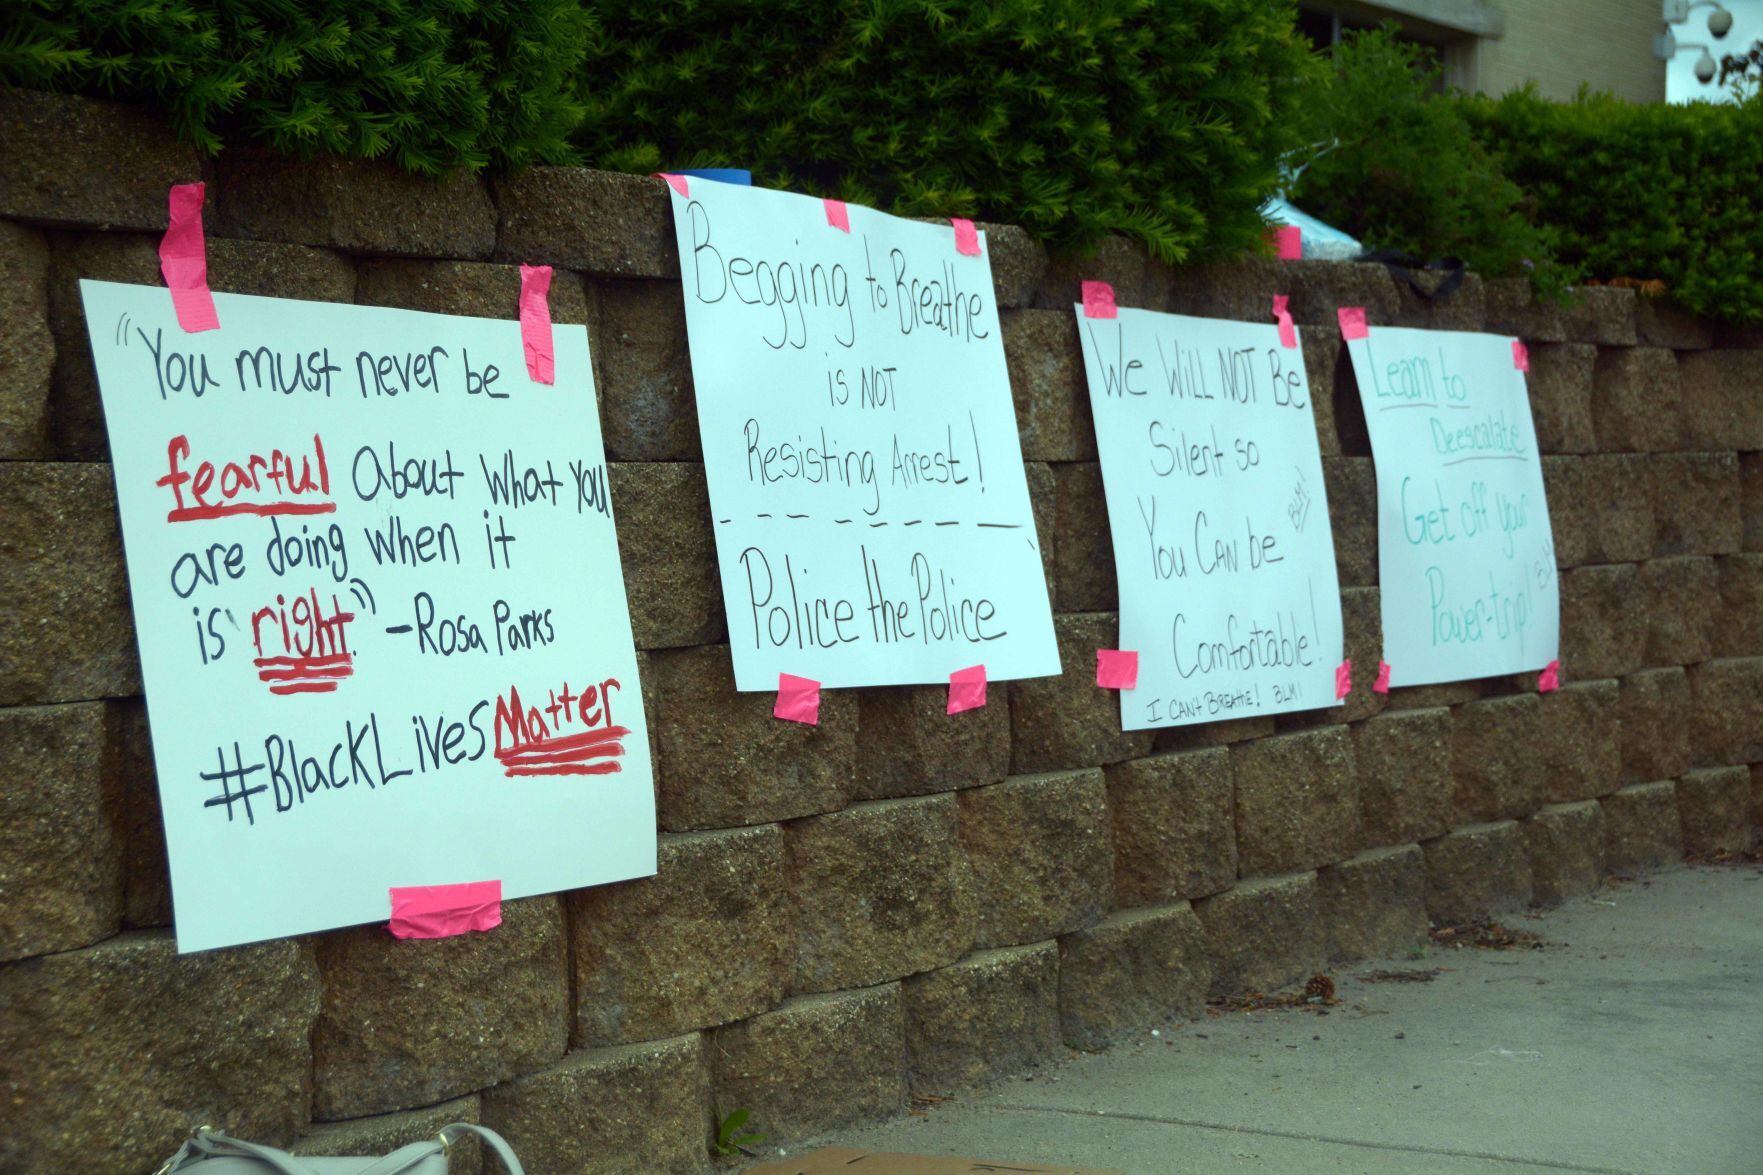 "You must never be
fearful about what you
are doing when it
is right." -Rosa Parks
#BlackLives Matter
Begging to Breathe
is NOT
Resisting Arrest!
Police the Police
We Will NOT Be
Silent so
You Can be
Comfortable!
BLM!
I CAN'T BREATHE! BLM!
Learn to
Deescalate
Get off your
Power-trip!
BLM